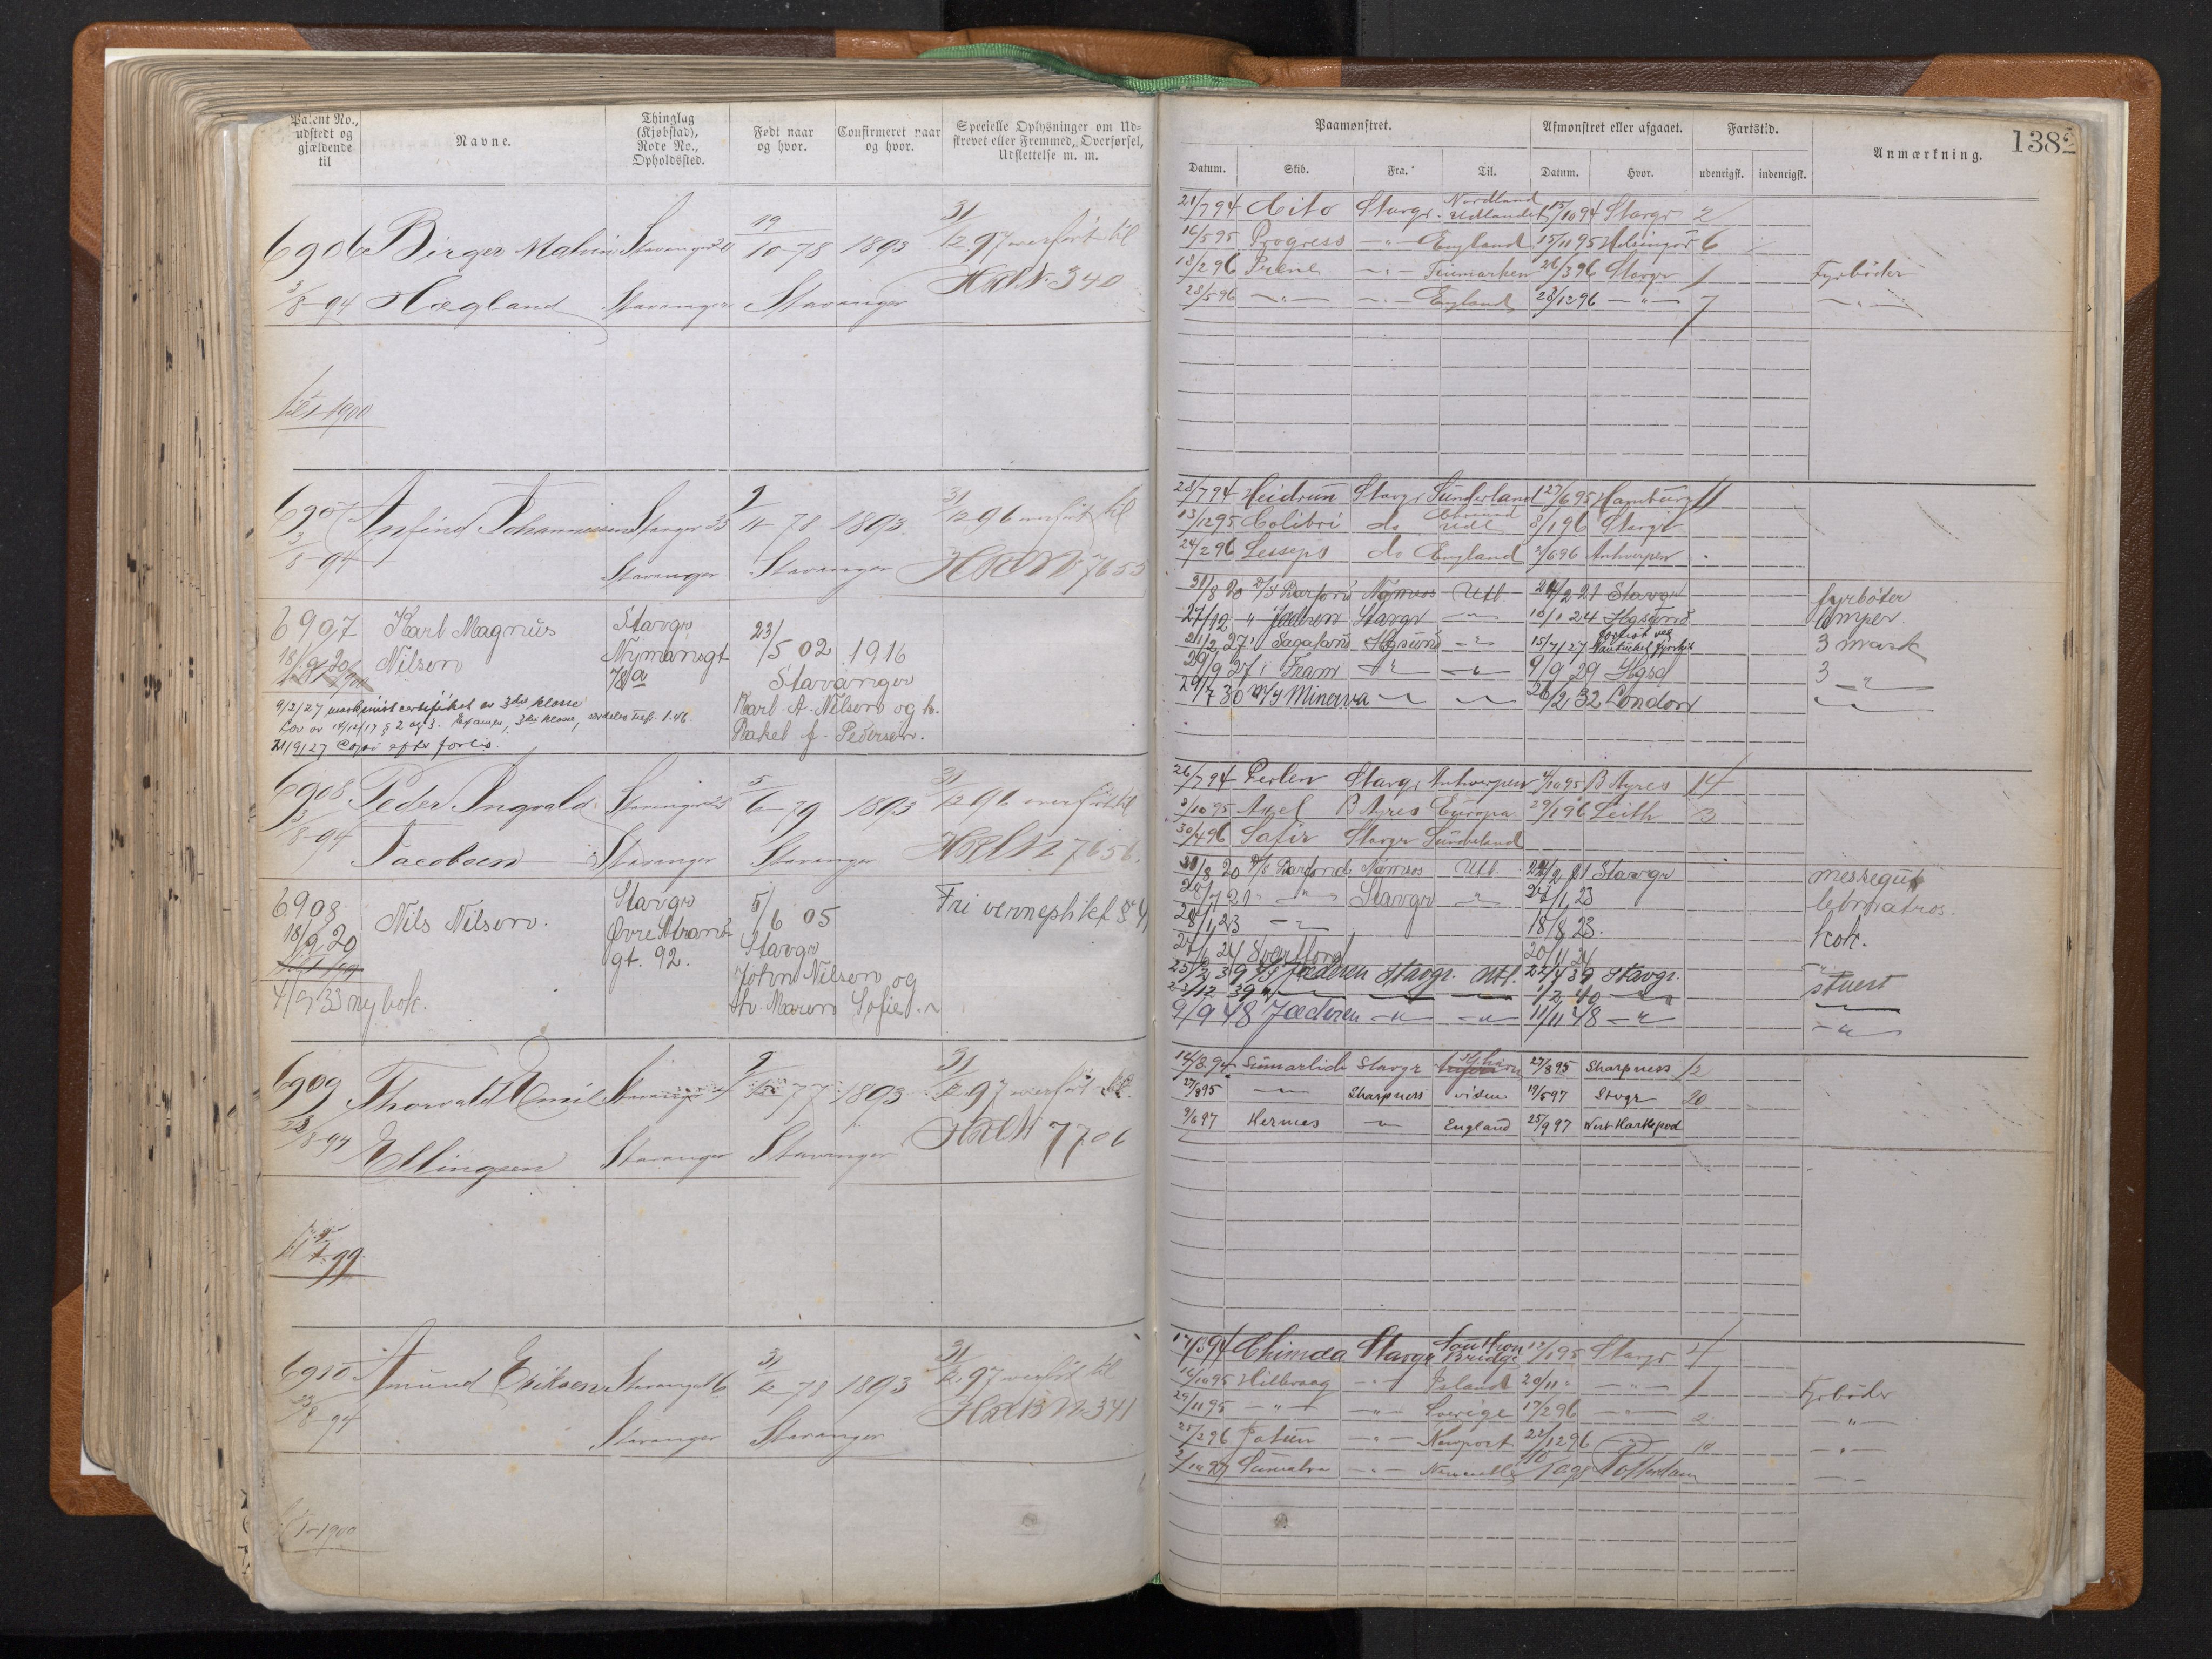 Patent No., udstedt og gjældende til
Navne.
Thinglag (Kjøbstad), Rode No., Opholdssted.
Født naar og hvor.
Confirmeret naar og hvor.
Specielle Oplysninger om Udskrevet eller Fremmed, Overførsel, Udslettelse m. m.
6906 Birger Malvin Stavanger 19 1893 31
10-78 12.97 overført til
3/8-94 Høgland Stavanger Stavanger No. 340
til 1-1900
6907 Anfind Johannessen Stavgr 33 9/11-78 1893. 31/12 96 overført til
3/8-94 Stavanger Stavanger No 7655
6907 Karl Magnus Stavgr 23/5 02 1916
18/9 20 Nilsen Nymansgt 78a Stavanger
9/2/27 maskinistcertifikat av 3die klasse Karl A. Nilsen og h.
Lov av 14/12/17 § 2 og 3. 3die klasse, Rakel f. Pedersen.
21/9/27 Copi efter forlis.
6908 Peder Ingvald Stavanger 5/6-79 1893 31/12 96 overført til
3/8-94 Jacobsen Stavanger Stavanger No 7656.
6908 Nils Nilsen. Stavgr 5/6 05 Fri verneplikt
18/9 20 Øvre Strand- Stavgr
gt. 92. John Nilsen og
4/9 33 ny bok. h. Maren Sofie
6909 Thorvald Emil Stavanger 9 77 1893 31/12 97 overført til
23/8-94 Ellingsen Stavanger Stavanger No 7706
til 1-99
6910 Amund Eriksen Stavanger 6 31/12-78 1893 31/12 97 overført til
23/8-94 Stavanger Stavanger No 341
1-1900
1382
Paamønstret.
Afmønstret eller afgaaet.
Fartstid.
Anmærkning.
Datum. Skib. Fra. Til. Datum. Hvor. udenrigsk. indenrigsk.
21/7 94 Cito Stavgr. Nordland Udlandet 15/10 94 Stavgr 2
16/5 95 Progress -"- England 15/11 95 Helsingör 6
18/2 96 Irene -"- Finmarken 26/3 96 Stavgr 1 Fyrbøder
28/5 96 -"- -"- England 28/12 96 -"- 7 -"-
28/7 94 Heidrun Stavgr Sunderland 27/6 95 Hamburg 11
13/12 95 Colibri do Udl 8/1 96 Stavgr
24/2 96 Lesseps do England 2/6 96 Antwerpen
31/8 20 Namsos Utl. 24/2 21 Stavgr fyrbøter
27/12 " Jæderen Stavgr -"- 10/1 24 Hgsund
21/2 27 Sagatun Hgsund -"- 15/7/27 forlist 3 mask
29/9 27 Fram -"- -"- 9/9 29 Hgsd 3 -"-
29/7 30 M/S Minerva -"- -"- 26/2 32 London -"-
26/7 94 Perlen Stavgr Antwerpen 4/10 95 B Ayres 14
3/10 95 Axel B Ayres Europa 29/1 96 Leith 3
30/4 96 Safir Stavgr Sunderland
31/8 20 Namsos Utl. 24/2 21 Stavgr messegut
28/7 21 " -"- Stavgr -"- 24/1 23 letmatros.
28/1 23 -"- 18/8 23. kok.
24/6 24 20/11 24
25/2 39 Jæderen Stavgr. Utl. 22/4 39 Stavgr. stuert
23/12 39 -"- -"- -"- 1/2 40 -"-
9/9 48 Jæderen -"- -"- 11/11 48 -"- -"-
14/8 94 Sumarlide Stavgr 27/8 95 Sharpness 12
27/8 95 -"- Sharpness viden 19/5 97 Stvgr 20
9/6 97 Hermes -"- England 25/9 97 West Hartlepool
17/8 94 Chimda Stavgr Bridge 12/1 95 Stavgr 4
16/10 95 Hillevaag -"- Island 20/11 " -"- 1 Fyrbøder
29/11 95 -"- -"- Sverige 17/2 96 -"- 2 -"-
25/2 96 Jotun -"- Newport 22/12 96 -"- 10 -"-
Sumatra -"- Newcastle Rotterdam -"-